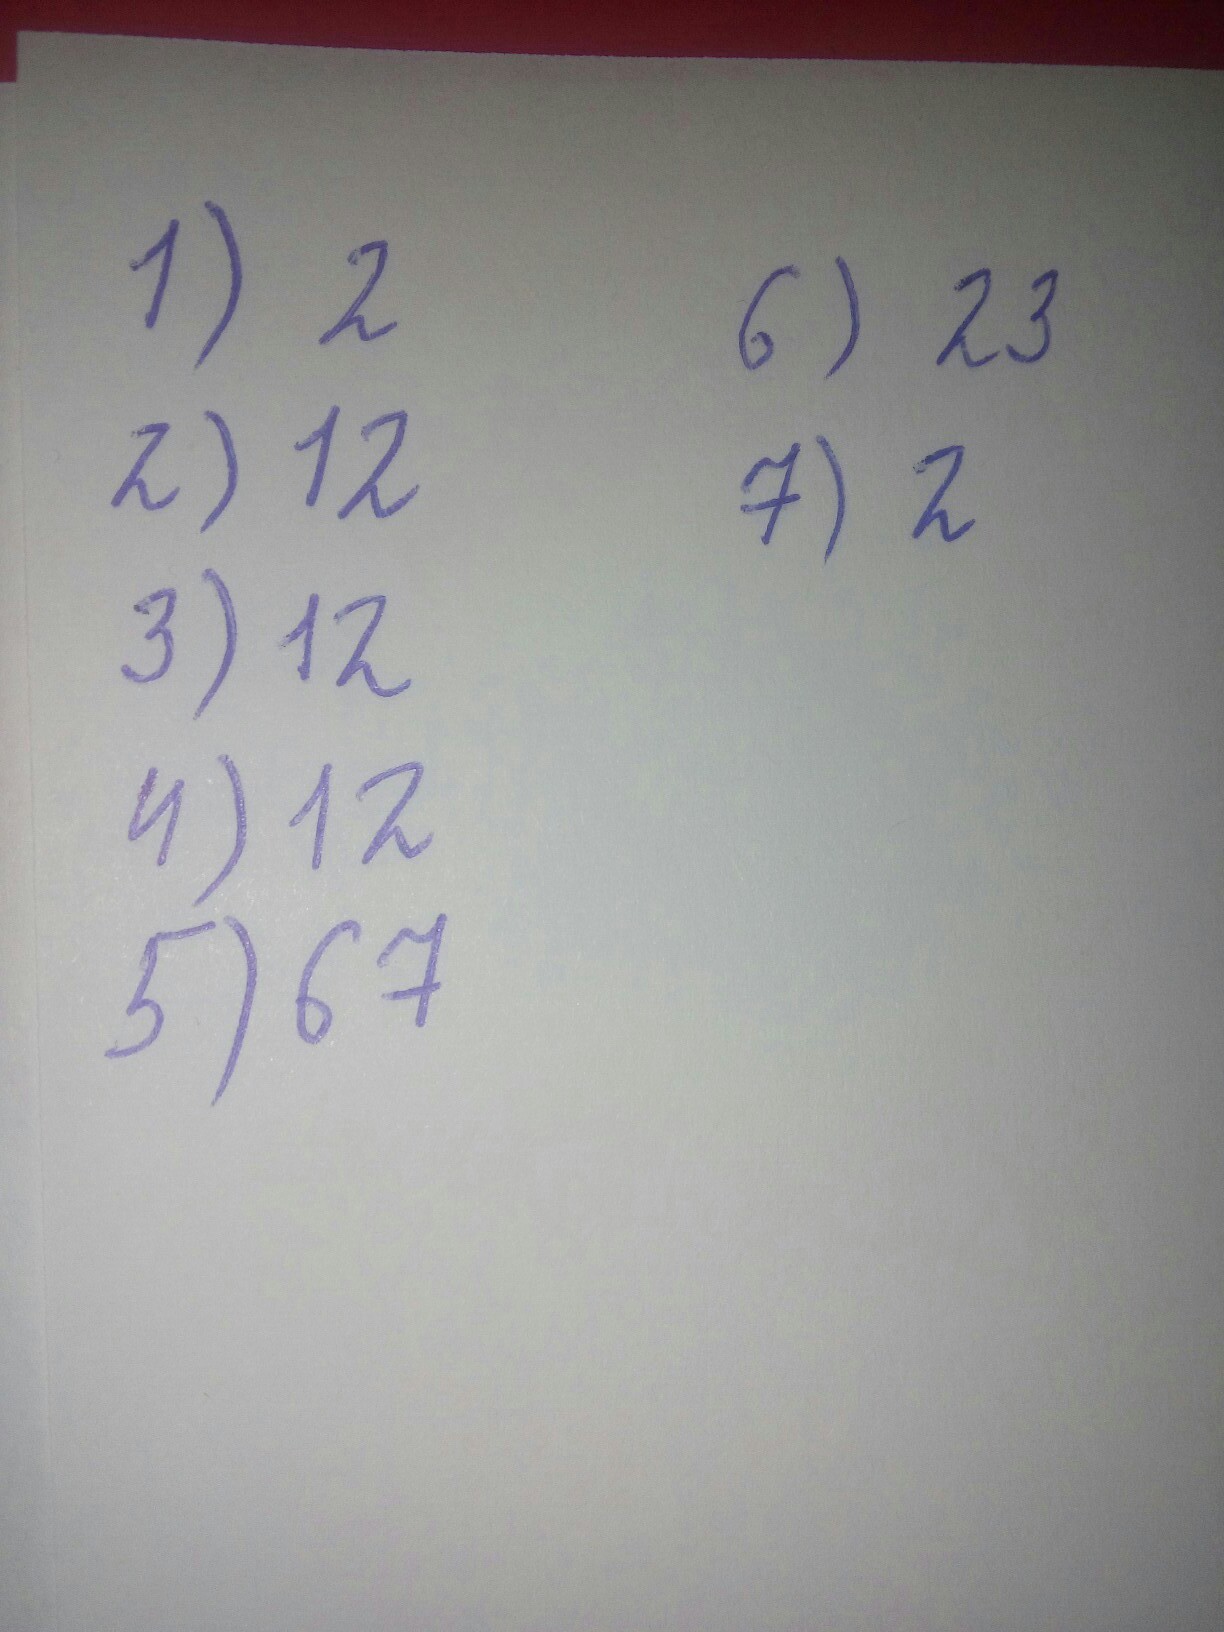 1) 2
2) 12
3) 12
4) 12
5) 67
6) 23
7) 2